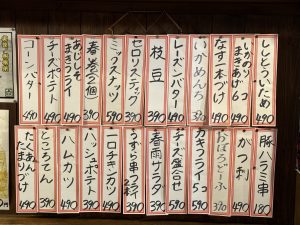 ししとういため 490
いかのり
まきあげ6コ 390
なす一本づけ 490
いかめんち 370
レーズンバター 490
枝豆 390
セロリスティック 390
ミックスナッツ 590
春巻(2個) 390
あじしそ
まきフライ 490
チーズポテト 490
コーンバター 490
豚ハラミ串 180
かつ刺 490
ごぼうごーふ 370
カキフライ5コ 590
チーズ盛合せ 590
春雨サラダ 390
うずら串フライ
2本 390
コロチキンカツ 490
ハッシュポテト 390
ハムカツ 490
ところてん 390
たくあん
たまりづけ 490